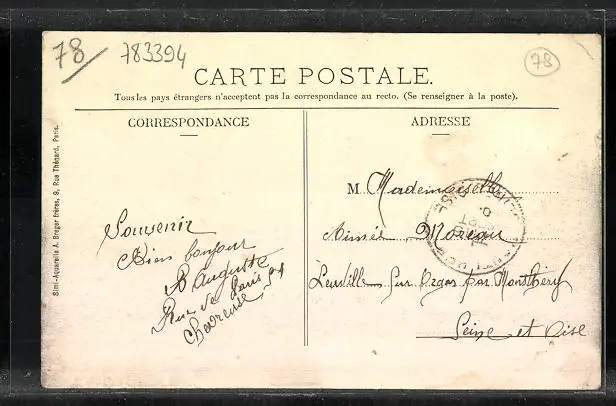 78
783394
78
CARTE POSTALE.
Tous les pays étrangers n'acceptent pas la correspondance au recto. (Se renseigner à la poste).
CORRESPONDANCE
ADRESSE
Simi-Aquarelle A. Breger frères, 9, Rue Thénard, Paris.
Souvenir
Bien bonjour
B Auguste
Rue de Paris 54
Chevreuse
M Mademoiselle
Aimée Moreau
Leuville sur Orges par Montlhéry
Seine et Oise